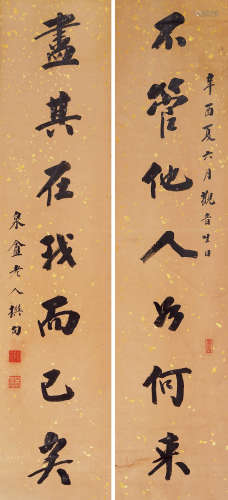 不管他人如何来
辛酉夏六月观音生日
尽其在我而已矣
泉盦老人撰句